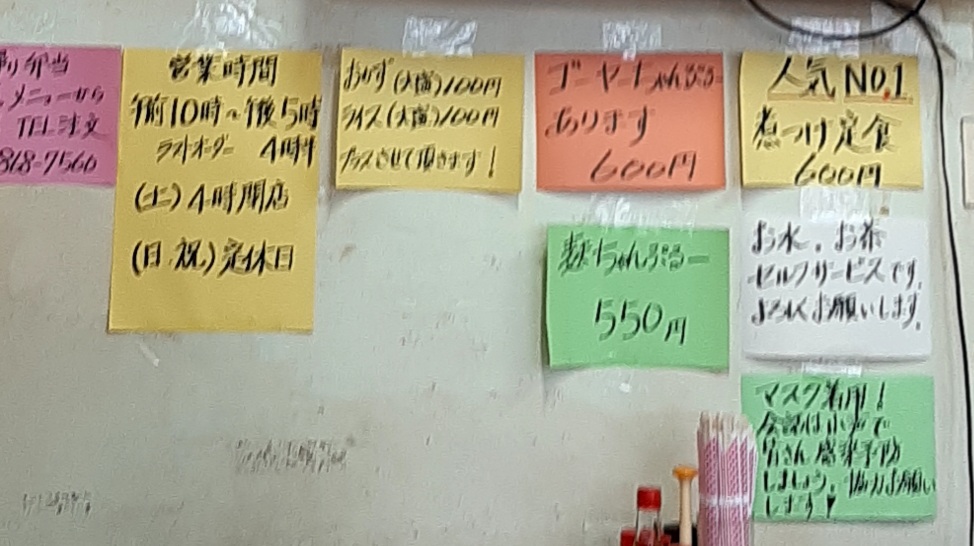 弁当
メニューから
TEL注文
868-7560
営業時間
午前10時～午後5時
ラストオーダー 4時半
(土) 4時閉店
(日.祝) 定休日
おかず(大盛)100円
ライス(大盛)100円
プラスさせて頂きます!
ゴーヤーちゃんぷるー
あります
600円
人気 NO.1
煮つけ定食
600円
麩ちゃんぷるー
550円
お水.お茶
セルフサービスです.
よろしくお願いします.
マスク着用!
会話は小声で
皆さん感染予防
しましょう.協力お願い
します!